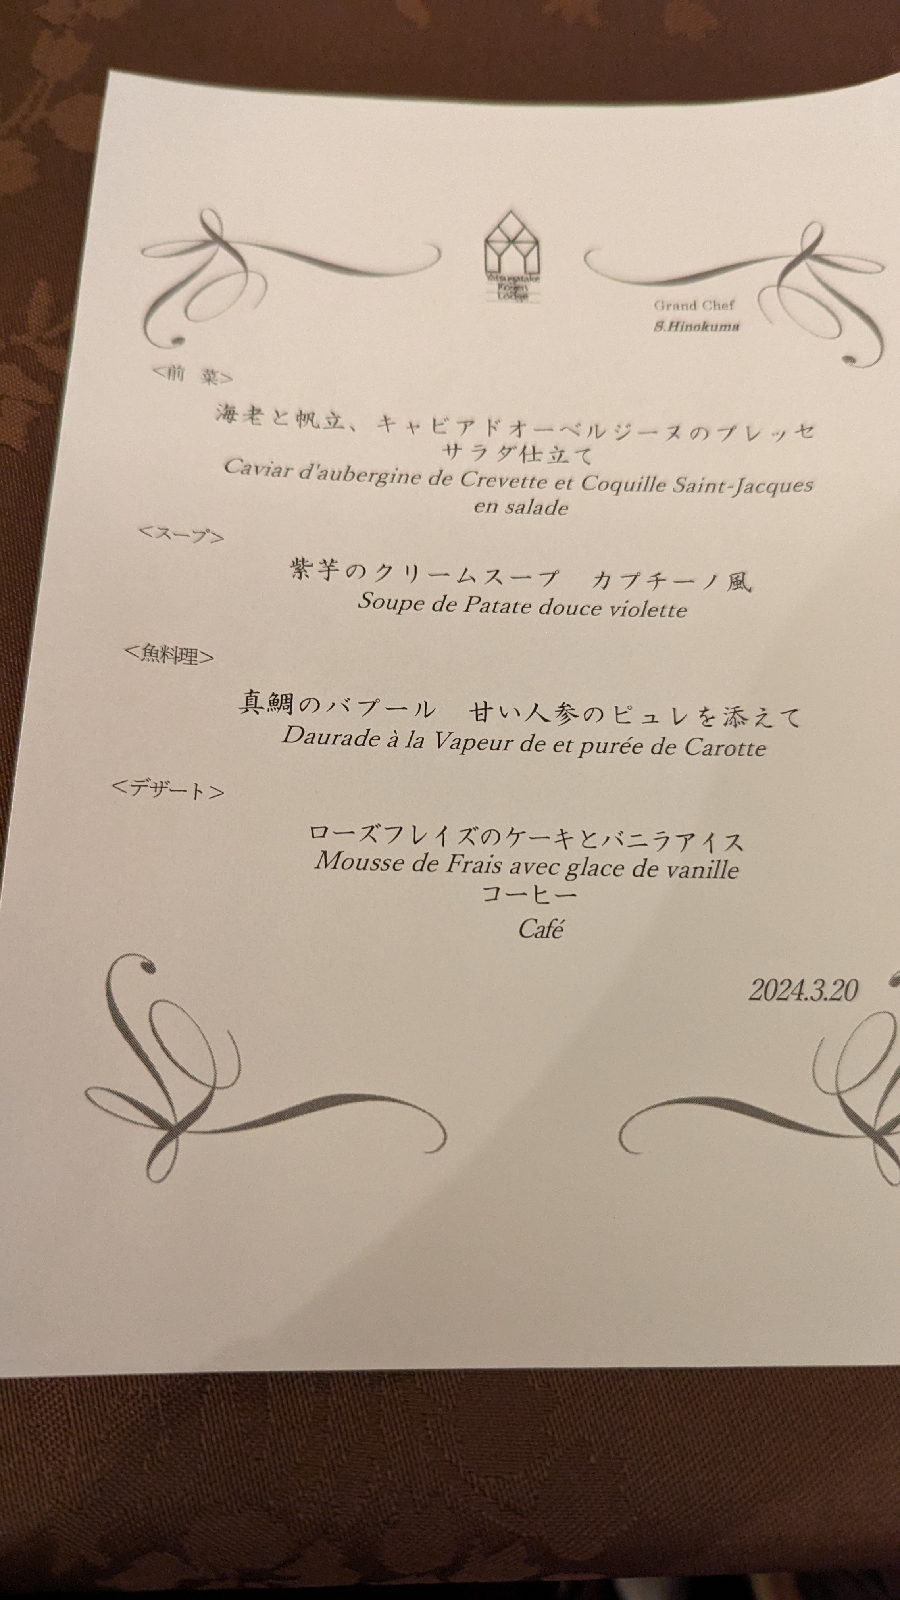 Yatsugatake
Kogen
Lodge
Grand Chef
S.Hinokuma
<前 菜>
海老と帆立、キャビアドオーベルジーヌのプレッセ
サラダ仕立て
Caviar d'aubergine de Crevette et Coquille Saint-Jacques
en salade
<スープ>
紫芋のクリームスープ カプチーノ風
Soupe de Patate douce violette
<魚料理>
真鯛のバプール 甘い人参のピュレを添えて
Daurade à la Vapeur de et purée de Carotte
<デザート>
ローズフレイズのケーキとバニラアイス
Mousse de Frais avec glace de vanille
コーヒー
Café
2024.3.20